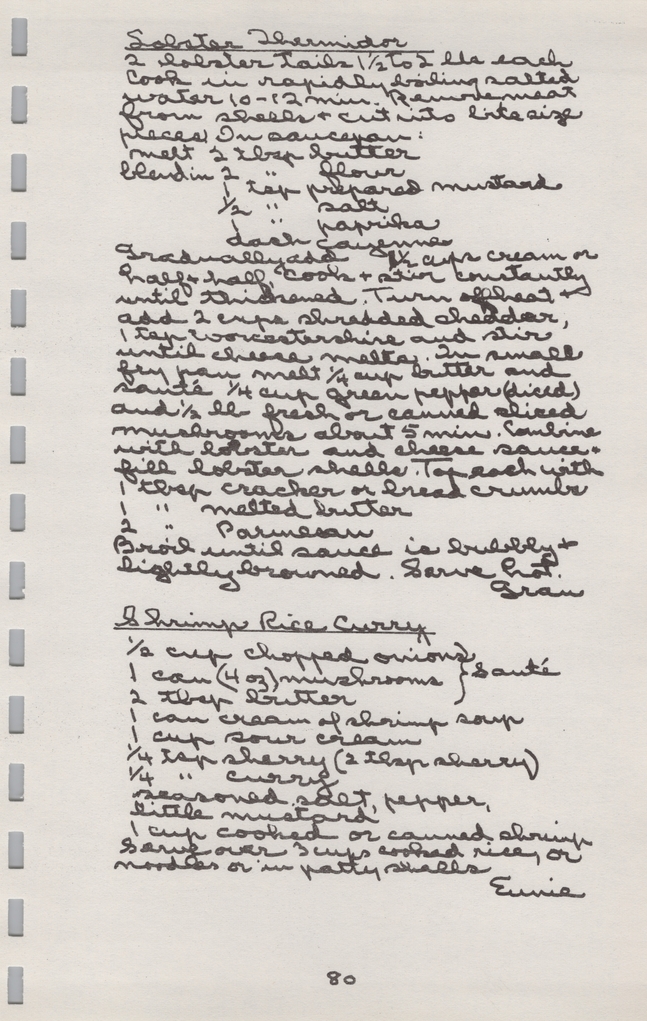 Lobster Thermidor
2 lobster tails 1½ to 2 lbs each
Cook in rapidly boiling salted
water 10-12 min. Remove meat
from shells + cut into bite size
pieces. In saucepan:
melt 2 tbsp butter
blend in 2 " flour
1 tsp prepared mustard
½ " salt
1 " paprika
dash cayenne
Gradually add 1½ cups cream or
half + half. Cook + stir constantly
until thickened. Turn off heat +
add 2 cups shredded cheddar,
1 tsp Worcestershire and stir
until cheese melts. In small
fry pan melt ¼ cup butter and
sauté ¼ cup green pepper (diced)
and ½ lb fresh or canned sliced
mushrooms about 5 min. Combine
with lobster and cheese sauce +
fill lobster shells. Top each with
1 tbsp cracker or bread crumbs
1 " melted butter
2 " Parmesan
Broil until sauce is bubbly +
lightly browned. Serve hot.
Gran
Shrimp Rice Curry
½ cup chopped onions
1 can (4 oz) mushrooms } Sauté
2 tbsp butter
1 can cream of shrimp soup
1 cup sour cream
¼ tsp sherry (2 tbsp sherry)
¼ " curry
seasoned salt, pepper,
little mustard
1 cup cooked or canned shrimp
Serve over 3 cups cooked rice, or
noodles or in patty shells
Eunie
80